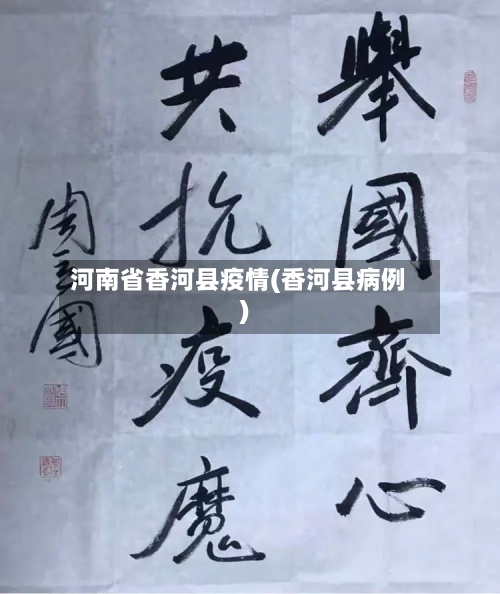 舉國齊心
共抗疫魔
周立國
河南省香河县疫情(香河县病例
)